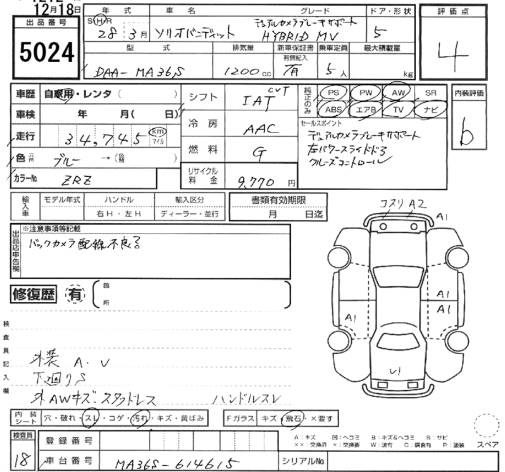 12月18日
出品番号 5024
年式 車名 グレード ドア・形状 評価点
SHR 28年 3月 ソリオバンディット デュアルカメラブレーキサポート HYBRID MV 5 4
型式 排気量 新車保証書 乗車定員 最大積載量
有無記入
DAA-MA36S 1200cc 有 5人 kg
車歴 自家用・レンタ( ) シフト CVT IAT 純正のみ PS PW AW SR 内装評価
ABS エアB TV ナビ b
車検 年 月( 日) 冷房 AAC セールスポイント
走行 34,745 Km マイル デュアルカメラブレーキサポート
左パワースライドドア
クルーズコントロール
色 ブルー → 燃料 G
カラーNo ZRZ リサイクル料金 9,770円
輸入車 モデル年式 ハンドル 輸入区分 書類有効期限
右H・左H ディーラー・並行 月 日迄
出品店申告欄 ※注意事項等記載
バックカメラ配線不良
コスリA2 A1
A1
A1 A1
A1
U1
修復歴 有 箇所
検査員記入欄
外装 A.U
下廻りS
外AWキズ スタッドレス ハンドルスレ
内装シート 穴・破れ・スレ・コゲ・汚れ・キズ・黄ばみ Fガラス キズ・飛石・×要す
A:キズ U:ヘコミ B:キズ&ヘコミ S:サビ
スペア
検査員 18 登録番号
車台番号 MA36S-614615 シリアルNo